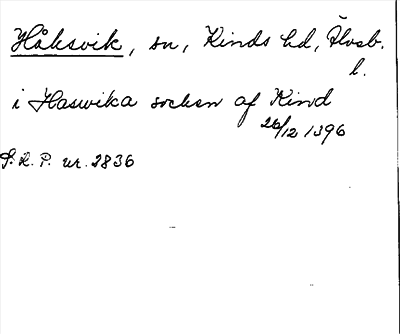 Håksvik, sn, Kinds hd, Älvsb.
l.
i Haswika socken af Kind
26/12 1396
S. R. P. nr. 2836